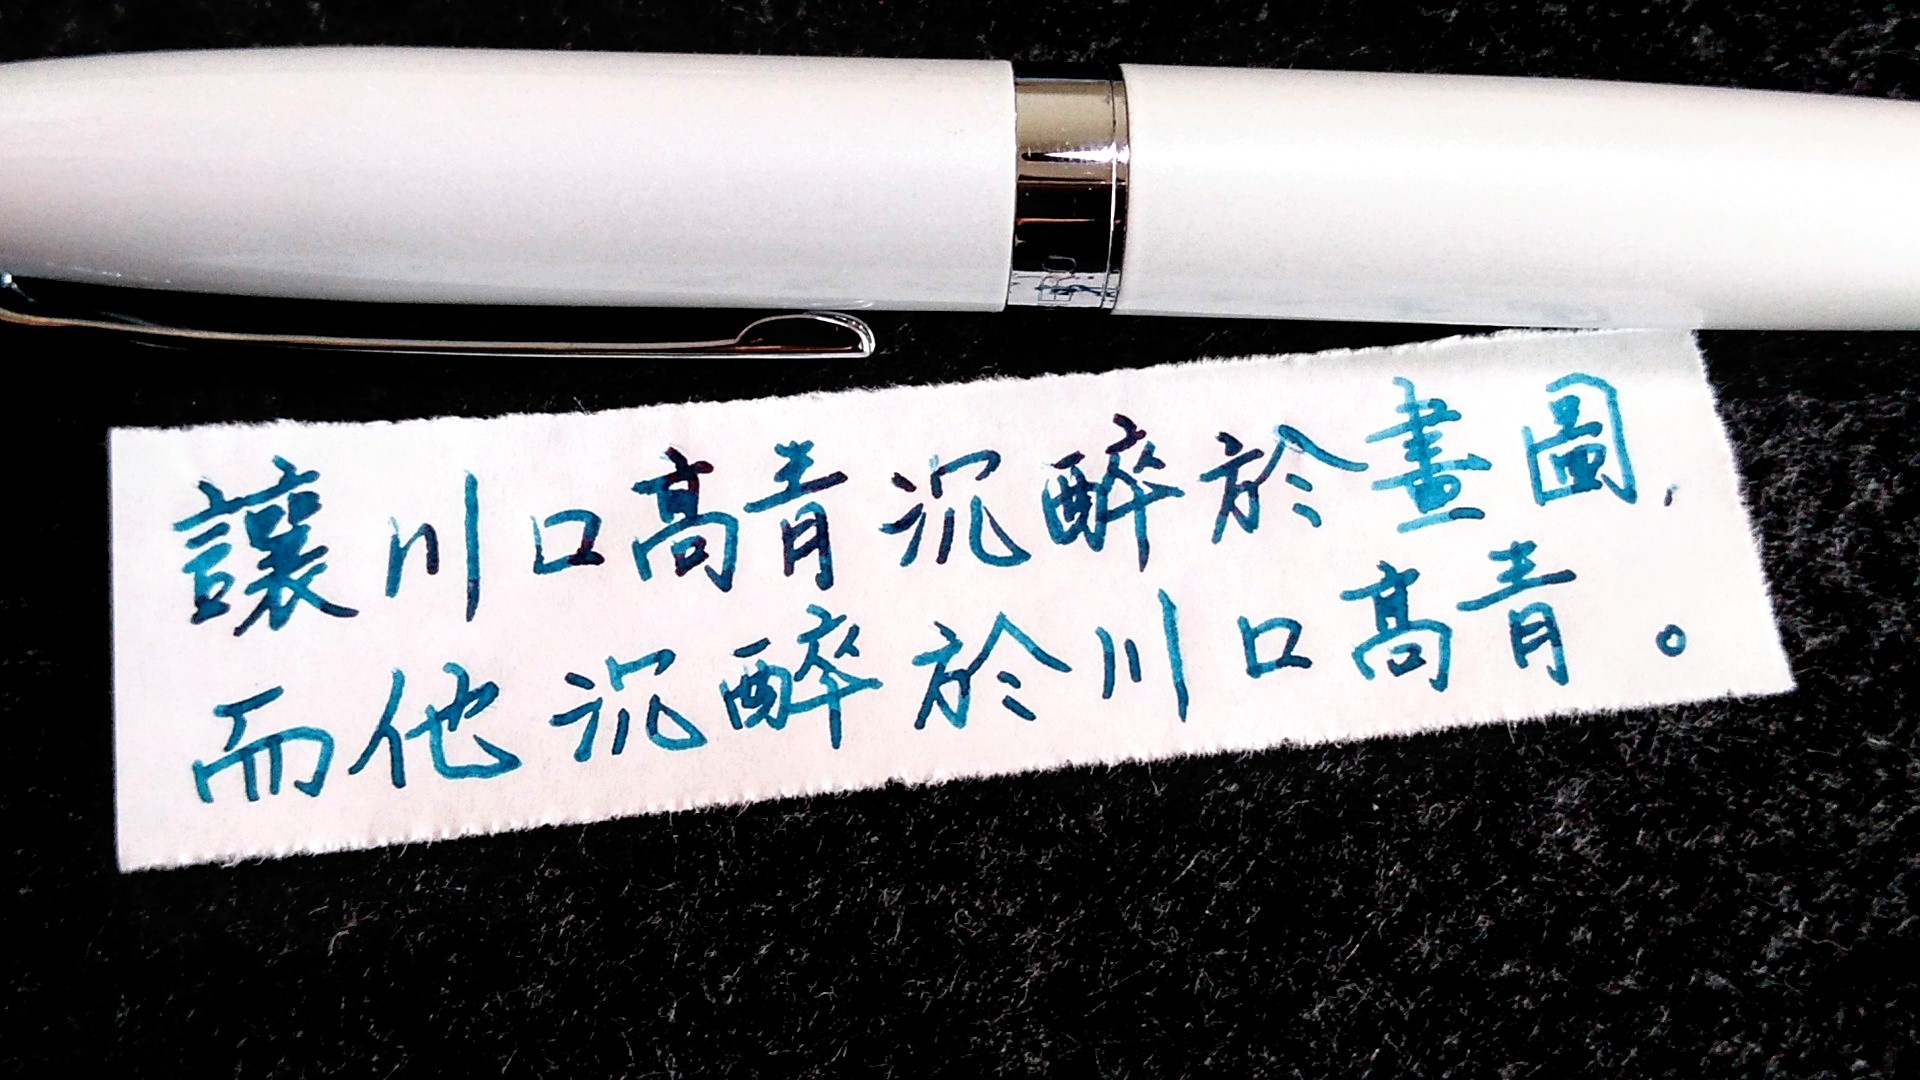 讓川口高青沉醉於畫圖,
而他沉醉於川口高青。